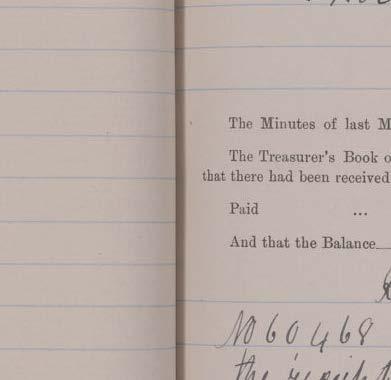 The Minutes of last M
The Treasurer's Book o
that there had been received
Paid ...
And that the Balance
No 60468
the receipt